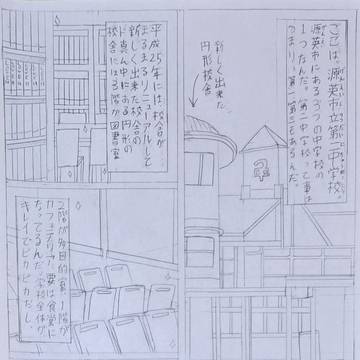 ここは、源英市立第二中学校。
源英市にある3つの中学校の
1つなんだ。第二中学校って事は
つまり、第一、第三もあるんだ。
新しく出来た
円形校舎
平成25年には、校舎が
まるまるリニューアルして
新しく出来た校舎の
ド真ん中にある円形の
校舎には3階が図書室
2階が多目的室、1階が
カフェテリア!要は食堂に
なってるんだ。学校全体が
キレイでピカピカだし